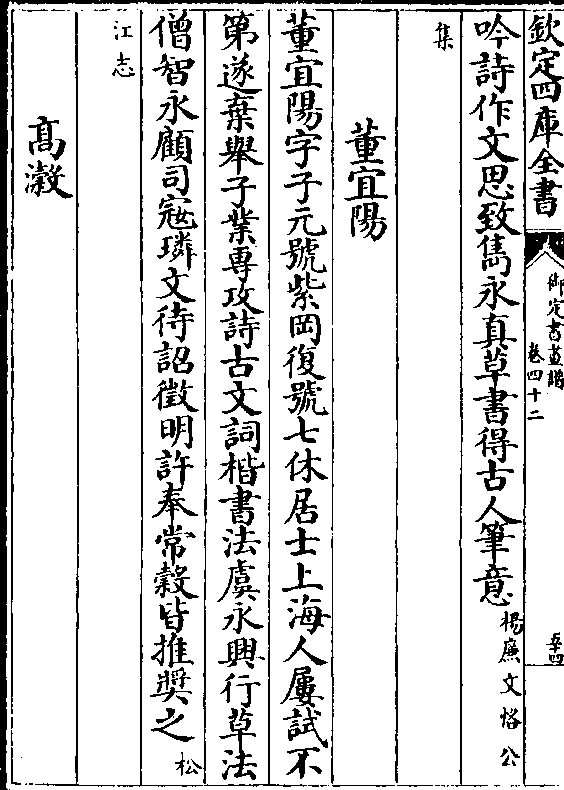 欽定四庫全書
御定書畫譜
卷四十二
五十四
吟詩作文思致雋永真草書得古人筆意楊廉文恪公
集
董宜陽
董宜陽字子元號紫岡復號七休居士上海人屢試不
第遂棄舉子業專攻詩古文詞楷書法虞永興行草法
僧智永顧司寇璘文待詔徵明許奉常穀皆推奬之松
江志
高瀔